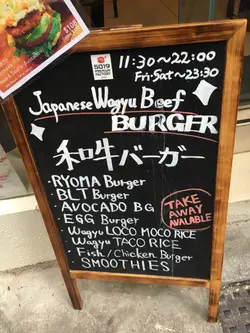 5019
PREMIUM
FACTORY
11:30~22:00
Fri·Sat~23:30
Japanese Wagyu Beef
BURGER
和牛バーガー
· RYOMA Burger
· BLT Burger
· AVOCADO BG
· EGG Burger
· Wagyu LOCO MOCO RICE
· Wagyu TACO RICE
· Fish/Chicken Burger
· SMOOTHIES
TAKE
AWAY
AVALABLE